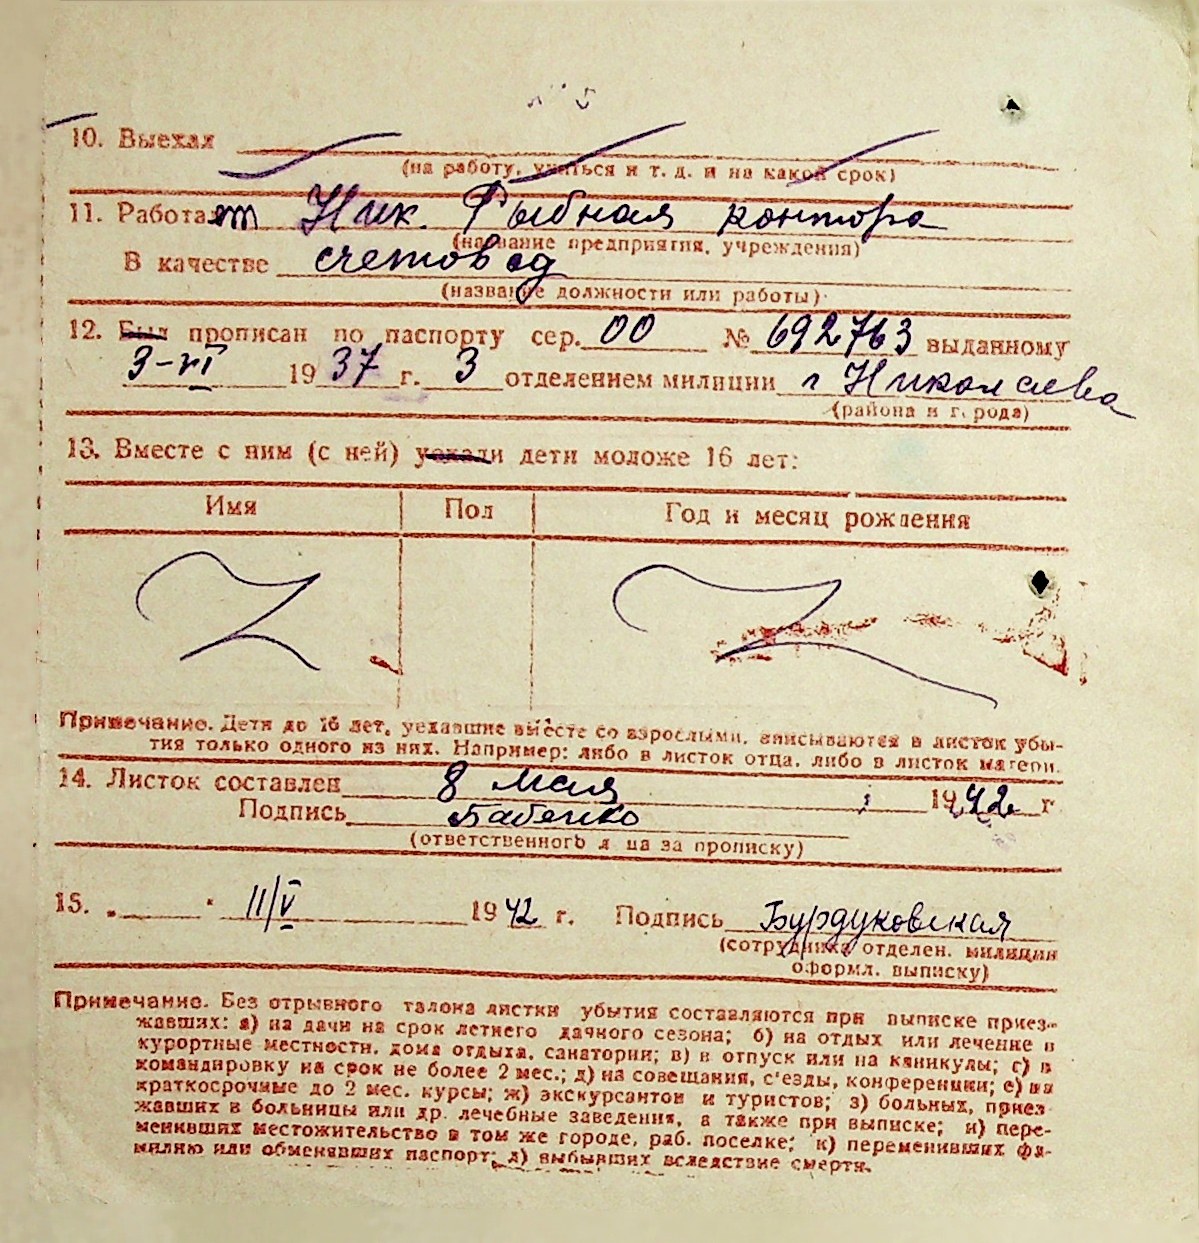 № 5
10. Выехал
(на работу, учиться и т. д. и на какой срок)
11. Работает Ник. Рыбная контора
(название предприятия, учреждения)
В качестве счетовод
(название должности или работы)
12. Был прописан по паспорту сер. 00 № 692763 выданному
3-VI 1937 г. 3 отделением милиции г Николаева
(района и города)
13. Вместе с ним (с ней) уехали дети моложе 16 лет:
Имя Пол Год и месяц рождения
Примечание. Дети до 16 лет, уехавшие вместе со взрослыми, вписываются в листок убы-
тия только одного из них. Например: либо в листок отца, либо в листок матери.
14. Листок составлен 8 мая 1942 г
Подпись Бабенко
(ответственного лица за прописку)
15. „ " 11/V 1942 г. Подпись Бурдуковская
(сотрудника отделен. милиции
оформл. выписку)
Примечание. Без отрывного талона листки убытия составляются при выписке приез-
жавших: а) на дачи на срок летнего дачного сезона; б) на отдых или лечение в
курортные местности, дома отдыха, санатории; в) в отпуск или на каникулы; г) в
командировку на срок не более 2 мес.; д) на совещания, с'езды, конференции; е) на
краткосрочные до 2 мес. курсы; ж) экскурсантов и туристов; з) больных, приез-
жавших в больницы или др. лечебные заведения, а также при выписке; и) пере-
менивших местожительство в том же городе, раб. поселке; к) переменивших фа-
милию или обменявших паспорт; л) выбывших вследствие смерти.